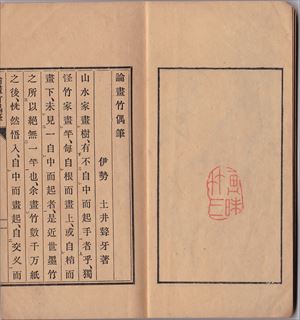 論畫竹偶筆
伊勢 土井聱牙著
山水家畫樹、有不自中而起手者乎、獨
怪竹家畫竿、每自根而畫上、或自梢而
畫下、未見一自中而起者、是近世墨竹
之所以絕無一竿也、余畫竹數千万紙
之後、恍然悟入、自中而畫起、自交叉而